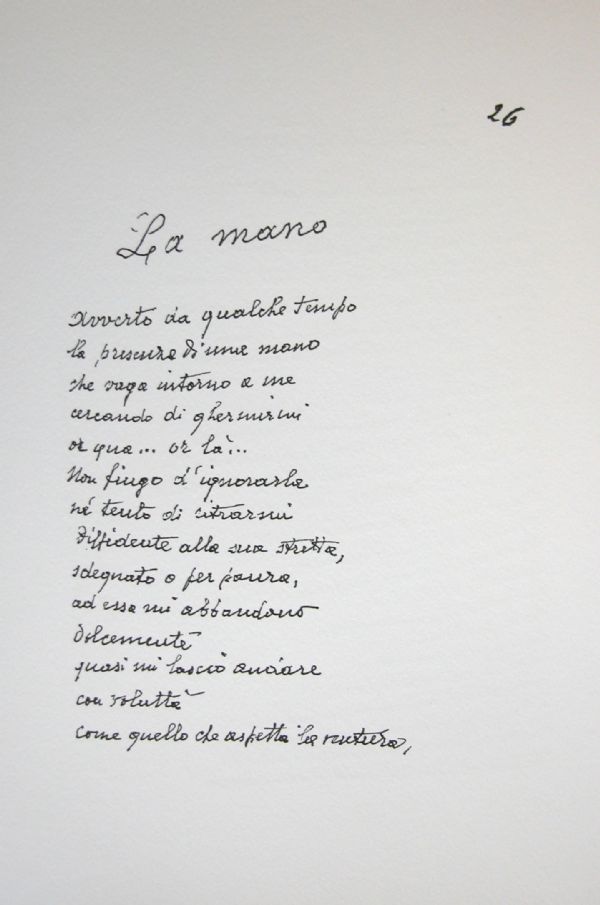 26
La mano
Avverto da qualche tempo
la presenza di una mano
che vaga intorno a me
cercando di ghermirmi
or qua... or là...
Non fingo d'ignorarla
né tento di ritrarmi
diffidente alla sua stretta,
sdegnato o per paura,
ad essa mi abbandono
dolcemente
quasi mi lascio andare
con voluttà
come quello che aspetta la ventura,